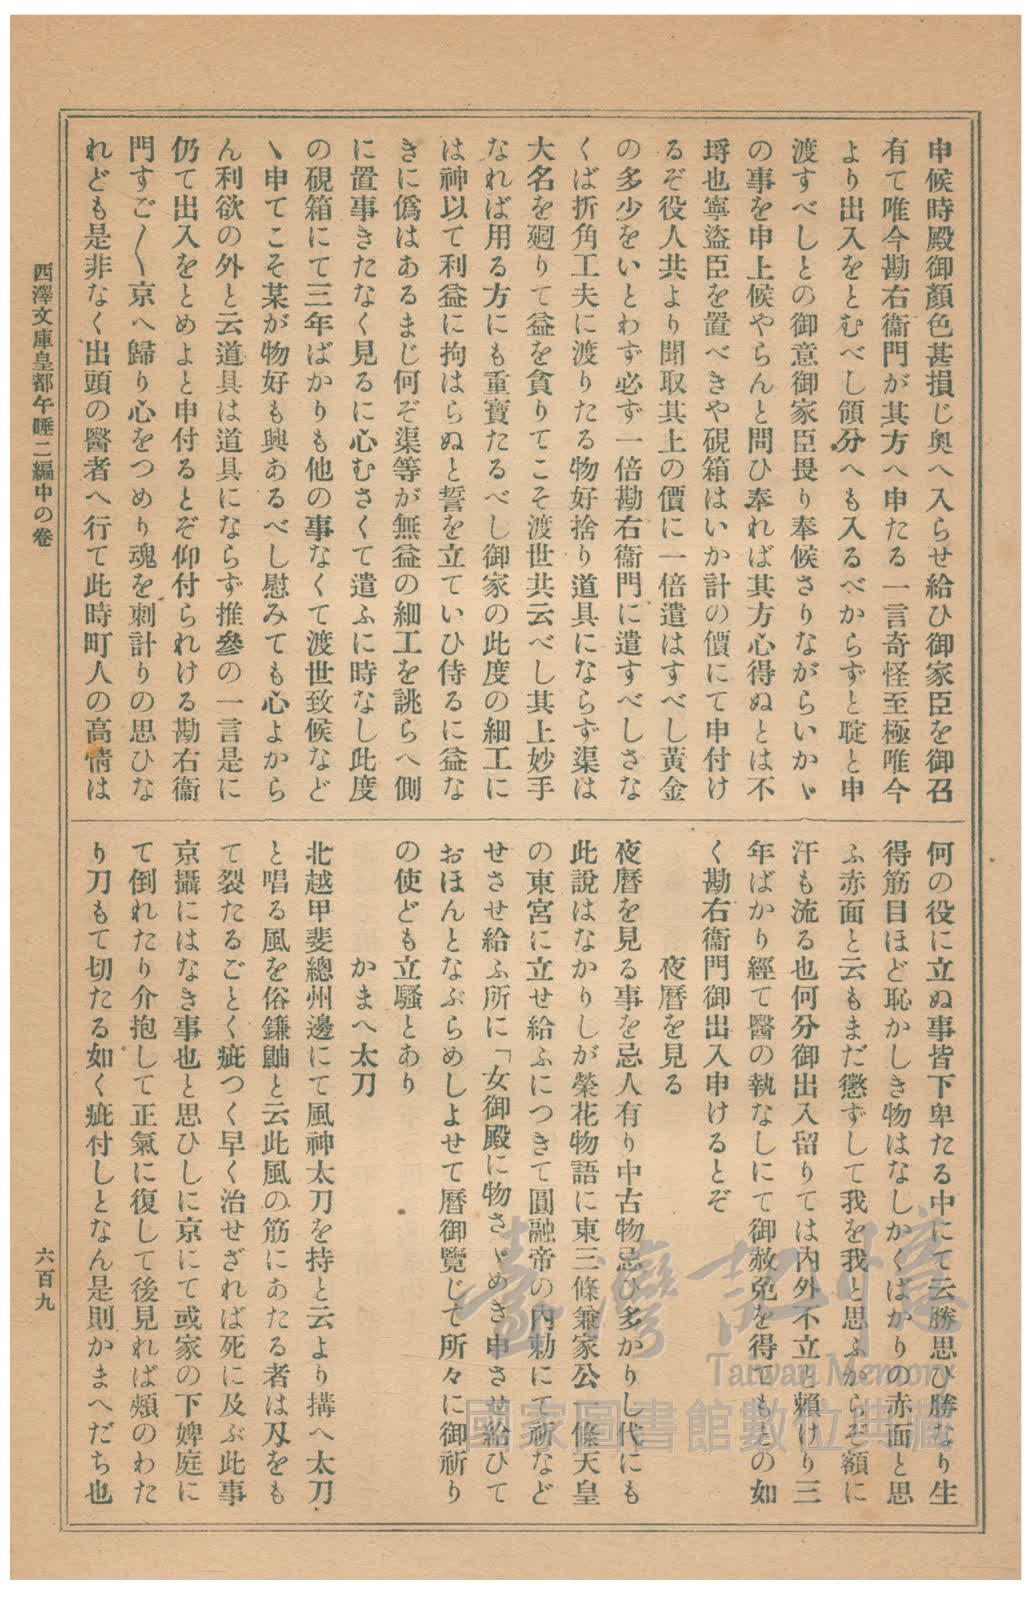 申候時殿御顏色甚損じ奥へ入らせ給ひ御家臣を御召
有て唯今勘右衞門が其方へ申たる一言奇怪至極唯今
より出入をとむべし領分へも入るべからずと碇と申
渡すべしとの御意御家臣畏り奉候さりながらいかゞ
の事を申上候やらんと問ひ奉れば其方心得ぬとは不
埒也寧盜臣を置べきや硯箱はいか計の價にて申付け
るぞ役人共より聞取其上の價に一倍遣はすべし黄金
の多少をいとわず必ず一倍勘右衞門に遣すべしさな
くば折角工夫に渡りたる物好捨り道具にならず渠は
大名を廻りて益を貪りてこそ渡世共云べし其上妙手
なれば用る方にも重寶たるべし御家の此度の細工に
は神以て利益に拘はらぬと誓を立ていひ侍るに益な
きに僞はあるまじ何ぞ渠等が無益の細工を誂らへ側
に置事きたなく見るに心むさくて遣ふに時なし此度
の硯箱にて三年ばかりも他の事なくて渡世致候など
ゝ申てこそ某が物好も興あるべし慰みても心よから
ん利欲の外と云道具は道具にならず推參の一言是に
仍て出入をとめよと申付るとぞ仰付られける勘右衞
門すご〳〵京へ歸り心をつめり魂を刺計りの思ひな
れども是非なく出頭の醫者へ行て此時町人の高情は
何の役に立ぬ事皆下卑たる中にて云勝思ひ勝なり生
得筋目ほど恥かしき物はなしかくばかりの赤面と思
ふ赤面と云もまだ懲ずして我を我と思ふからぞ額に
汗も流る也何分御出入留りては内外不立と賴けり三
年ばかり經て醫の執なしにて御赦免を得てもとの如
く勘右衞門御出入申けるとぞ
夜曆を見る
夜曆を見る事を忌人有り中古物忌ひ多かりし代にも
此說はなかりしが榮花物語に東三條兼家公一條天皇
の東宮に立せ給ふにつきて圓融帝の内勅にて祈など
せさせ給ふ所に「女御殿に物さゞめき申させ給ひて
おほんとなぶらめしよせて曆御覽じて所々に御祈り
の使ども立騷とあり
かまへ太刀
北越甲斐總州邊にて風神太刀を持と云より搆へ太刀
と唱る風を俗鎌鼬と云此風の筋にあたる者は刄をも
て裂たるごとく疵つく早く治せざれば死に及ぶ此事
京攝にはなき事也と思ひしに京にて或家の下婢庭に
て倒れたり介抱して正氣に復して後見れば頰のわた
り刀もて切たる如く疵付しとなん是則かまへだち也
西澤文庫皇都午睡二編中の卷
六百九
臺灣記憶
Taiwan Memory
國家圖書館數位典藏